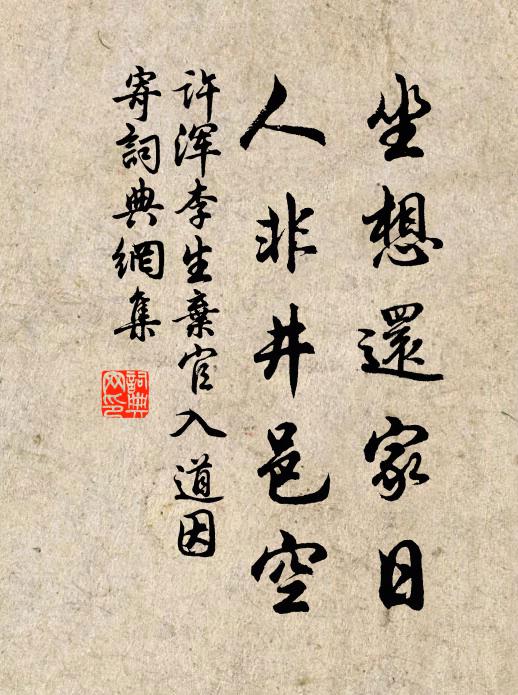 坐想還家日
人非井邑空
許渾李生棄官入道因
寄詞典網集
詞典
网印